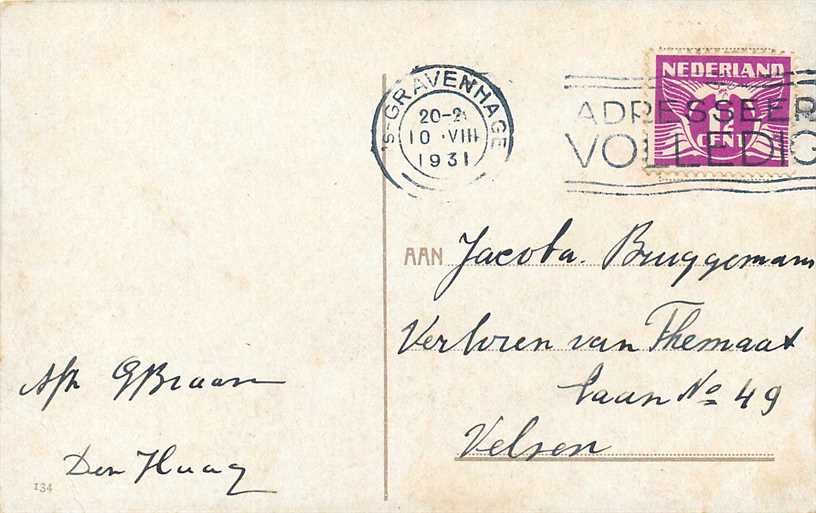 's-GRAVENHAGE
20-2
10 ·VIII
1931
NEDERLAND
1½
CENT
ADRESSEER
VOLLEDIG
AAN Jacoba. Bruggeman
Verloren van Themaat
laan No 49
Velsen
Afz GBraam
Den Haag
134